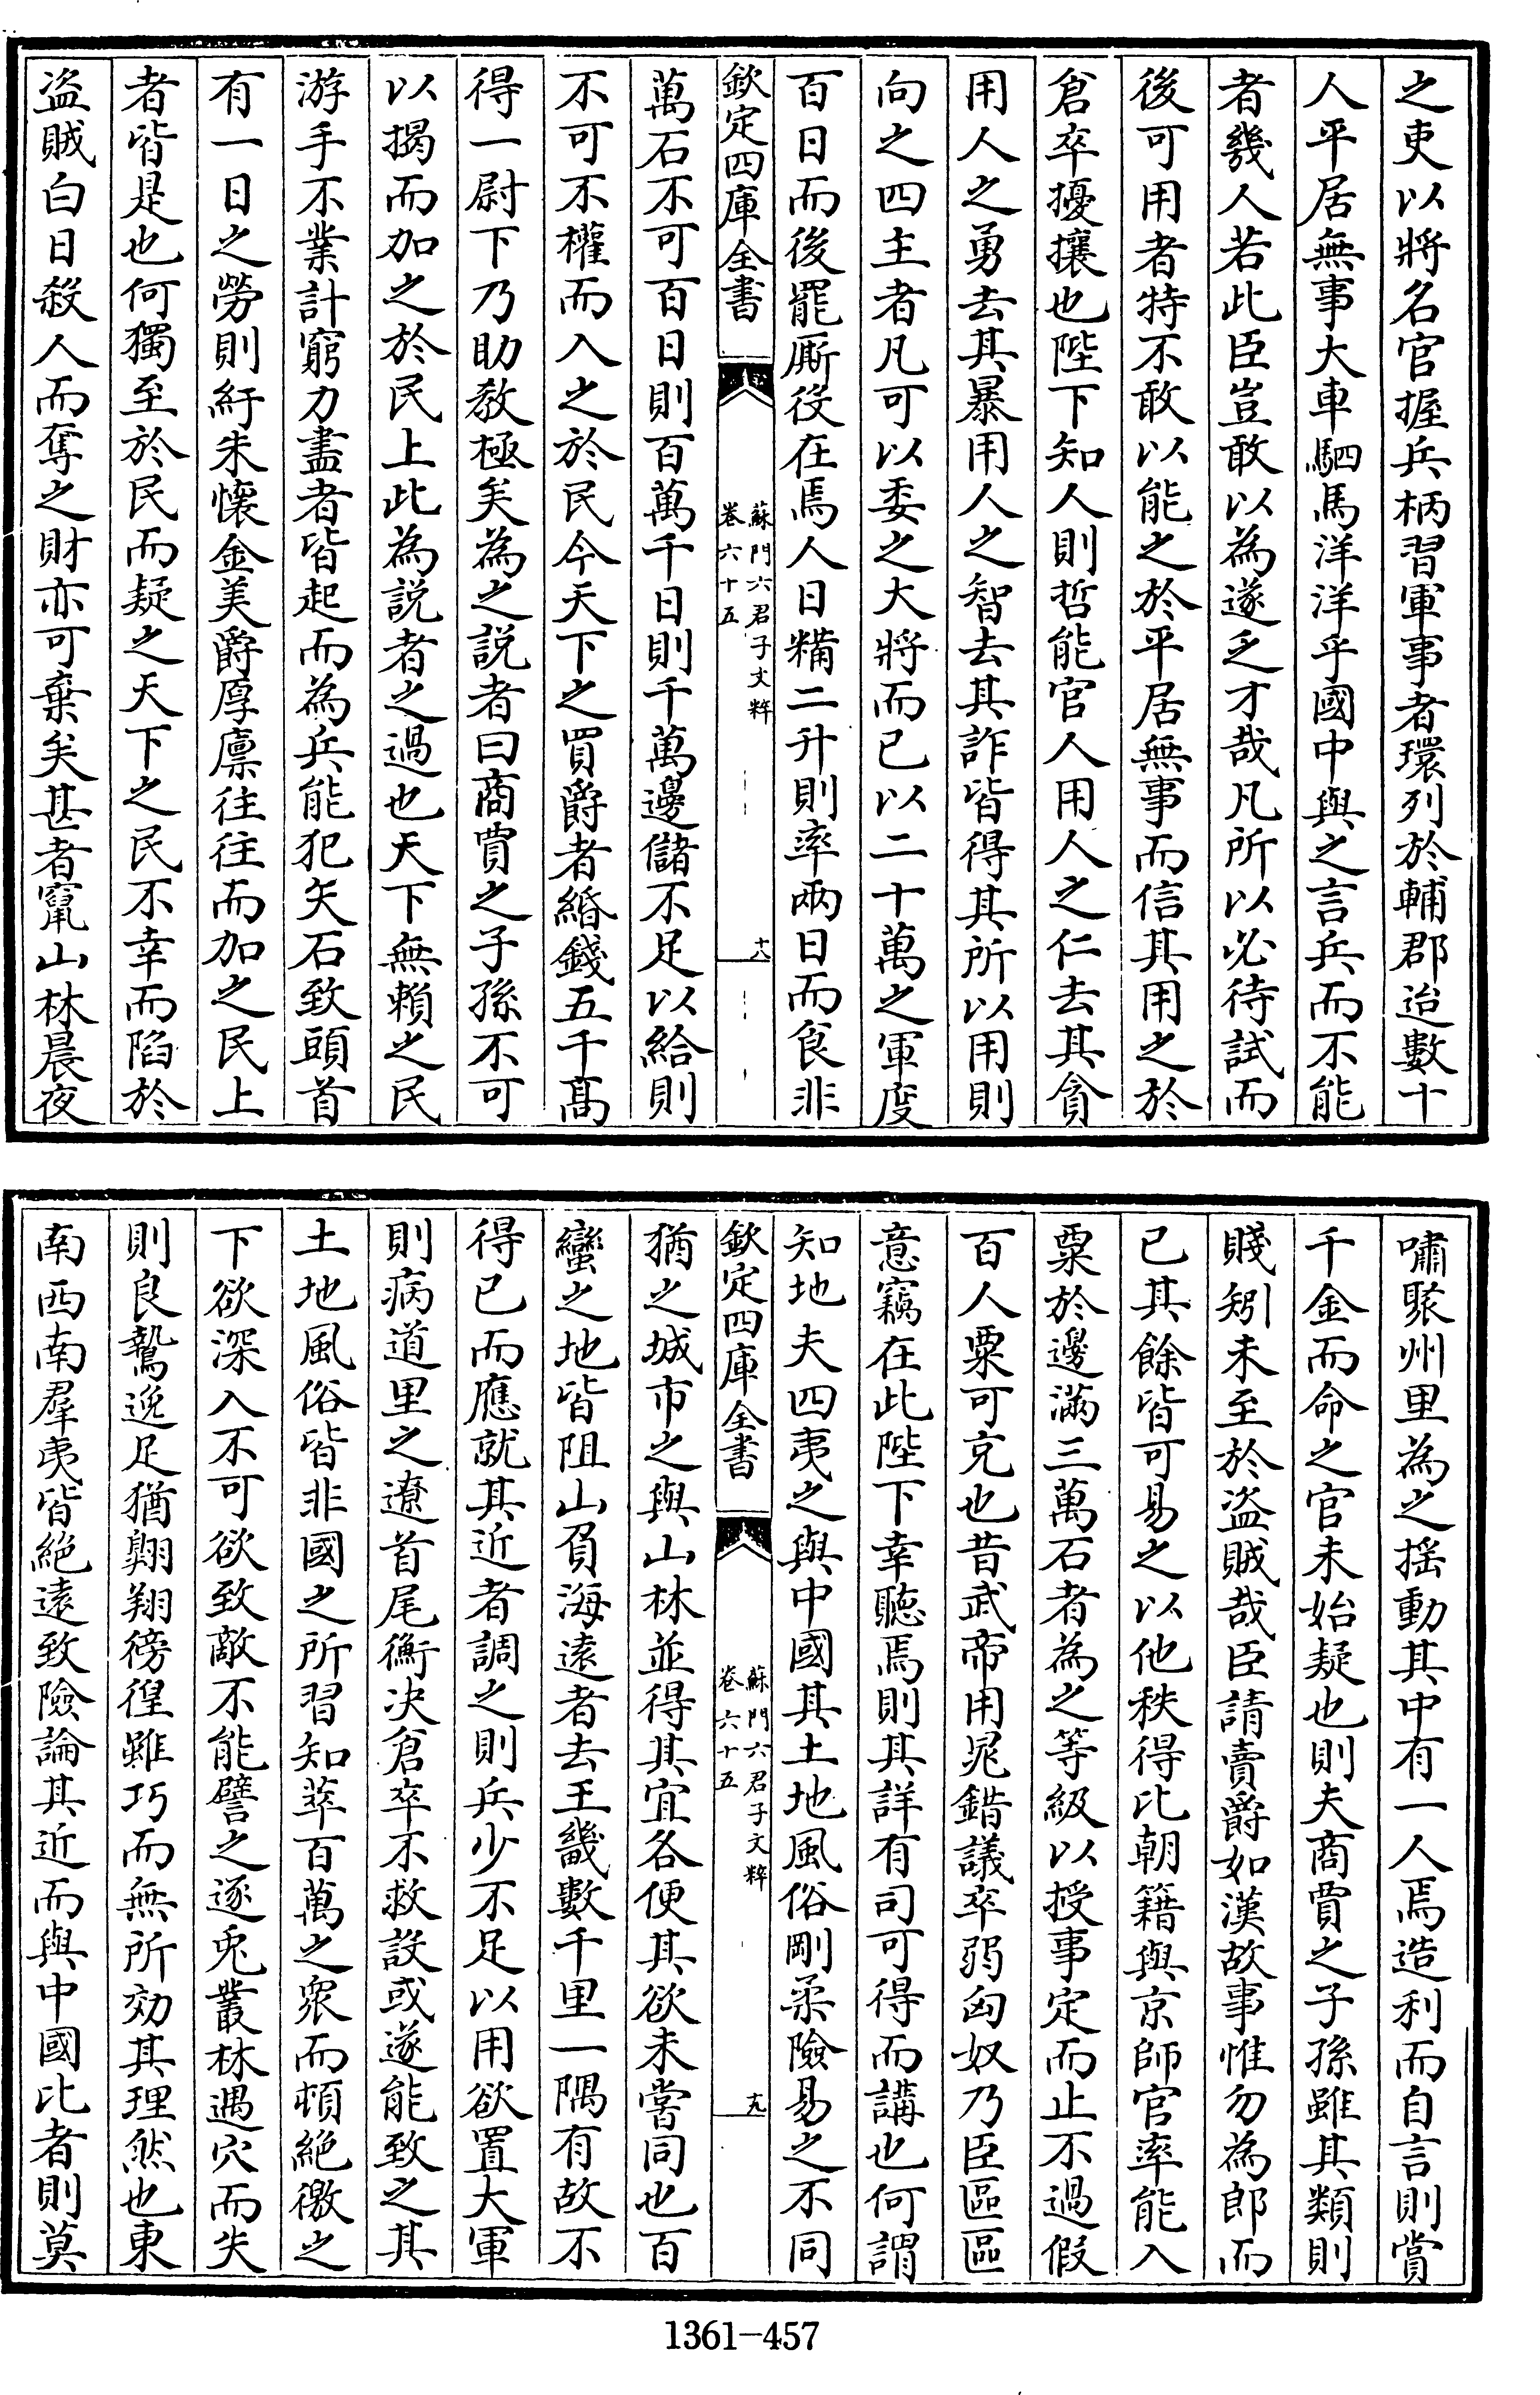 之吏以將名官握兵柄習軍事者環列於輔郡迨數十
人平居無事大車駟馬洋洋乎國中與之言兵而不能
者幾人若此臣豈敢以為遂乏才哉凡所以必待試而
後可用者特不敢以能之於平居無事而信其用之於
倉卒擾攘也陛下知人則哲能官人用人之仁去其貪
用人之勇去其暴用人之智去其詐皆得其所以用則
向之四主者凡可以委之大將而已以二十萬之軍度
百日而後罷厮役在焉人日糒二升則率兩日而食非
欽定四庫全書
蘇門六君子文粹
卷六十五
十八
萬石不可百日則百萬千日則千萬邊儲不足以給則
不可不權而入之於民今天下之買爵者緡錢五千髙
得一尉下乃助教極矣為之説者曰商賈之子孫不可
以掲而加之於民上此為説者之過也天下無賴之民
游手不業計窮力盡者皆起而為兵能犯矢石致頭首
有一日之勞則紆朱懷金美爵厚廪往往而加之民上
者皆是也何獨至於民而疑之天下之民不幸而陷於
盜賊白日殺人而奪之財亦可棄矣甚者竄山林晨夜
嘯聚州里為之揺動其中有一人焉造利而自言則賞
千金而命之官未始疑也則夫商賈之子孫雖其類則
賤矧未至於盜賊哉臣請賣爵如漢故事惟勿為郎而
已其餘皆可易之以他秩得比朝籍與京師官率能入
粟於邊滿三萬石者為之等級以授事定而止不過假
百人粟可充也昔武帝用晁錯議卒弱匈奴乃臣區區
意竊在此陛下幸聽焉則其詳有司可得而講也何謂
知地夫四夷之與中國其土地風俗剛柔險易之不同
欽定四庫全書
蘇門六君子文粹
卷六十五
十九
猶之城市之與山林並得其宜各便其欲未嘗同也百
蠻之地皆阻山負海遠者去王畿數千里一隅有故不
得已而應就其近者調之則兵少不足以用欲置大軍
則病道里之遼首尾衡决倉卒不救設或遂能致之其
土地風俗皆非國之所習知萃百萬之衆而頓絶徼之
下欲深入不可欲致敵不能譬之逐兎叢林遇穴而失
則良鷙逸足猶翺翔徬徨雖巧而無所効其理然也東
南西南羣夷皆絶遠致險論其近而與中國比者則莫
1361-457